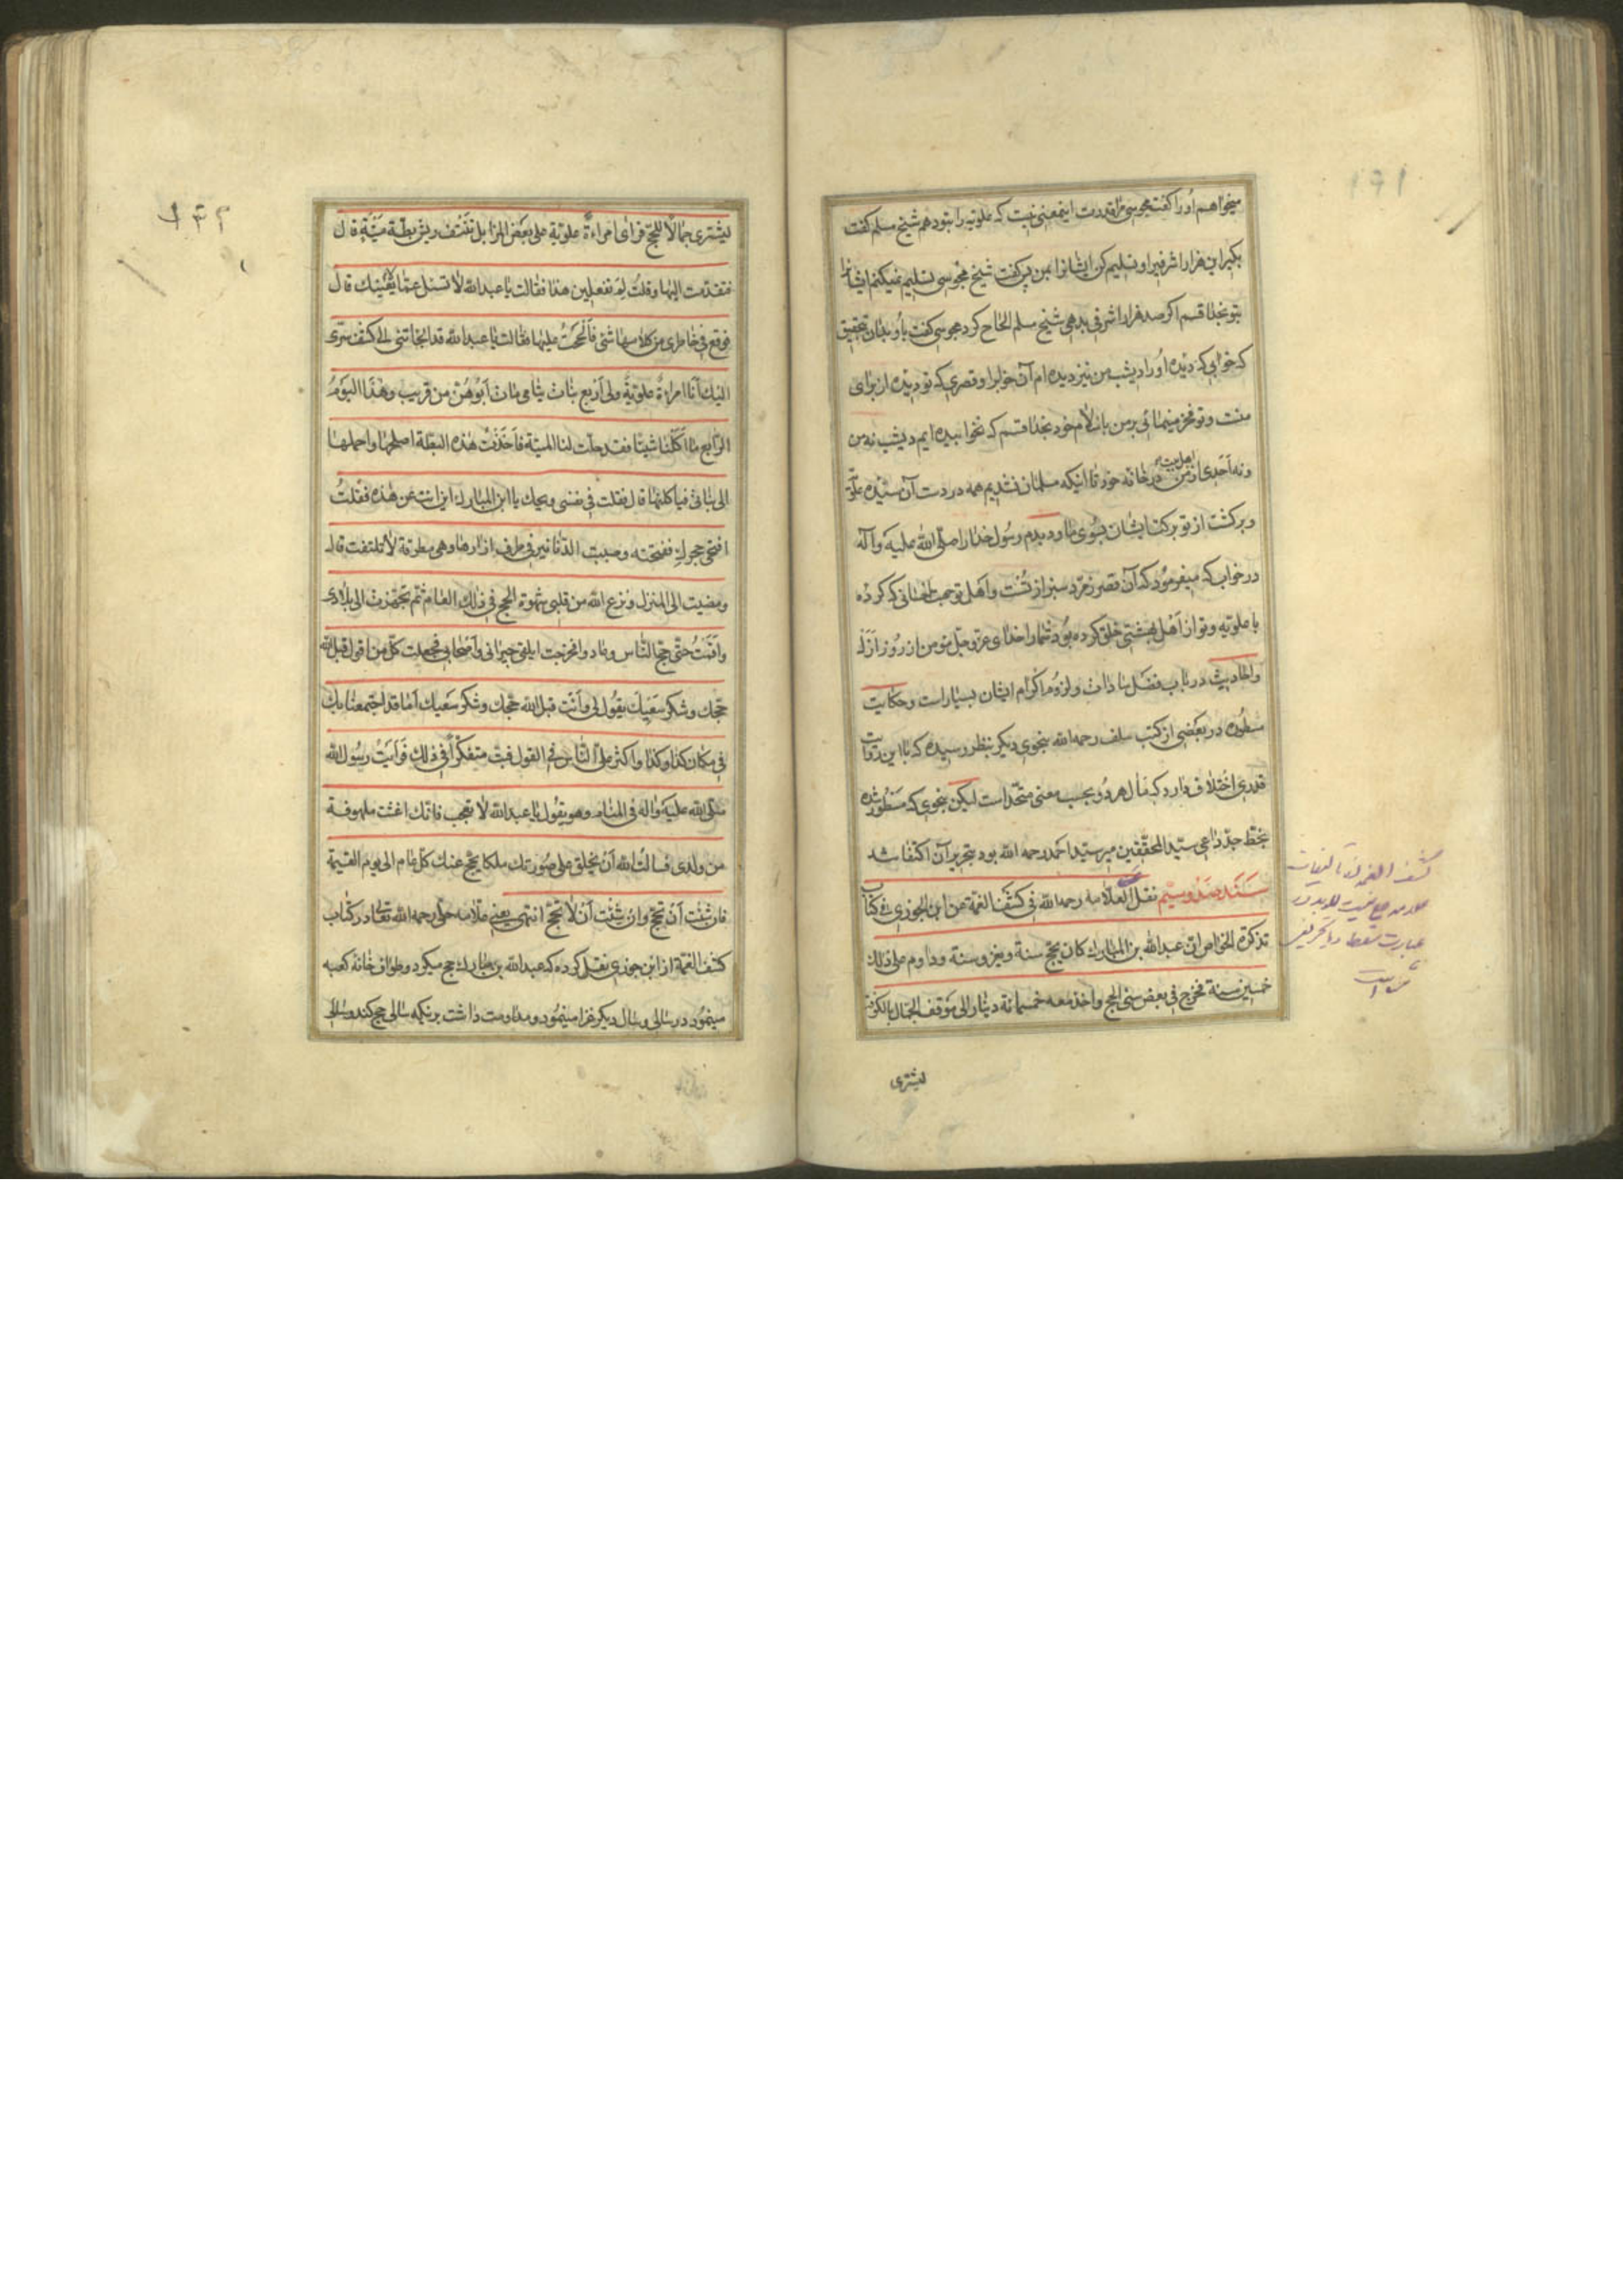 ۱۹۱
میخواهم اورا کفت مجوسی مرا قدرت اینمعنی نیست که علویه را بتو دهم شیخ مسلم کفت
بکیر این هزار اشرفیرا و تسلیم کن ایشانرا بمن پس کفت شیخ مجوسی تسلیم نمیکنم ایشانرا
بتو بخدا قسم اکر صد هزار اشرفی بدهی شیخ مسلم الحاح کرد مجوسی کفت باو بدان بتحقیق
که خوابی که دیده اورا دیشب من نیز دیده ام آن خوابرا و قصری که تو دیده از برای
منست و تو فخر مینمائی بر من باسلام خود بخدا قسم که نخوابیده ایم دیشب نه من
و نه احدی از اهل بیت من در خانه خود تا اینکه مسلمان نشدیم همه در دست آن سیّده علویّه
و برکشت از تو برکت ایشان بسوی ما و دیدم رسول خدا را صلی الله علیه وآله
در خواب که میفرمود که آن قصر زمرّد سبز از تست و اهل تو بجهت احسانی که کرده
با علویه و تو از اهل بهشتی خلق کرده بود شما را خدای عزّ و جل مؤمن از روز ازل
و احادیث در باب فضل سادات و لزوم اکرام ایشان بسیار است و حکایت
مسطوره در بعضی از کتب سلف رحمه الله بنحوی دیکر بنظر رسیده که با این روایت
قدری اختلاف دارد که مآل هر دو بحسب معنی متّحد است لیکن بنحوی که مسطور شده
بخط جدّ داعی سیّد المحققین میر سیّد احمد رحمه الله بود بتحریر آن اکتفا شد
سند صد و سیّم نقل العلامه رحمه الله فی کشف الغمة عن ابن الجوزی فی کتاب
تذکرة الخواص ان عبدالله بن المبارك کان یحج سنة و یغزو سنة و داوم علی ذلك
خمسین سنة فخرج فی بعض سنی الحج و اخذ معه خمسمائة دینار الی موقف الجمال بالکوفة
لیشتری
کشف الغمه از تألیفات
عبارت سقط یا تحریف
لیشتری جمالا للحجّ فرأی امراءة علویّة علی بعض المزابل تنتف ریش بطّة میّتة قال
فتقدّمت الیها و قلت لم تفعلین هذا فقالت یا عبدالله لا تسئل عمّا لا یعنیك قال
فوقع فی خاطری من کلامها شئ فالححت علیها فقالت یا عبدالله قد الجأتنی الی کشف سرّی
الیك أنا امراءة علویّة ولی أربع بنات یتامی مات أبوهنّ من قریب وهذا الیوم
الرّابع ما أکلنا شیئا فقد حلّت لنا المیتة فأخذت هذه البطّة اصلحها و احملها
الی بناتی فیأکلنها قال فقلت فی نفسی ویحك یا ابن المبارك این انت عن هذه فقلت
افتحی حجرك ففتحته و صببت الدّنانیر فی طرف ازارها و هی مطرقة لا تلتفت قال
و مضیت الی المنزل و نزع الله من قلبی شهوة الحج فی ذلك العام ثم تجهزت الی بلادی
و أقمت حتّی حجّ النّاس و عادوا فخرجت اتلقی جیرانی و أصحابی فجعلت کل من اقول قبل الله
حجّك و شکر سعیك یقول لی و أنت قبل الله حجّك و شکر سعیك أما قد اجتمعنا بك
فی مکان کذا و کذا و اکثر علیّ النّاس فی القول فبتّ متفکرا فی ذلك فرأیت رسول الله
صلی الله علیه واله فی المنام وهو یقول یا عبدالله لا تعجب فانّك اغثت ملهوفة
من ولدی فسألت الله أن یخلق علی صورتك ملکا یحجّ عنك کلّ عام الی یوم القیمة
فان شئت أن تحجّ و ان شئت أن لا تحجّ انتهی یعنی علّامه حلّی رحمه الله تعالی در کتاب
کشف الغمّة از ابن جوزی نقل کرده که عبدالله بن مبارك حج میکرد و طواف خانه کعبه
مینمود در سالی و سال دیکر غزا مینمود و مداومت داشت بر نکه سالی حج کند و سالی